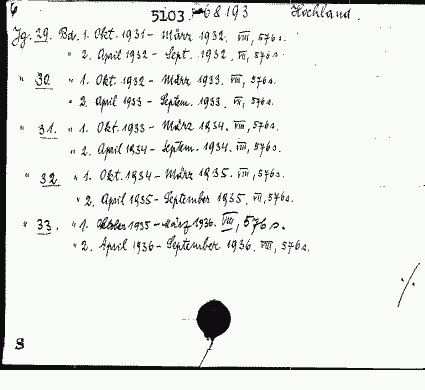 5103 68193 Hochland.
Jg. 29. Bd. 1. Okt. 1931 - März 1932. VIII, 576 s.
" 2. April 1932 - Sept. 1932. VII, 576 s.
" 30 " 1. Okt. 1932 - März 1933. VIII, 576 s.
" 2. April 1933 - Septem. 1933. VII, 576 s.
" 31. " 1. Okt. 1933 - März 1934. VIII, 576 s.
" 2. April 1934 - Septem. 1934. VIII, 576 s.
" 32 " 1. Okt. 1934 - März 1935. VIII, 576 s.
" 2. April 1935 - September 1935. VII, 576 s.
" 33. " 1. Oktober 1935 - März 1936. VIII, 576 s.
" 2. April 1936 - September 1936. VIII, 576 s.
S